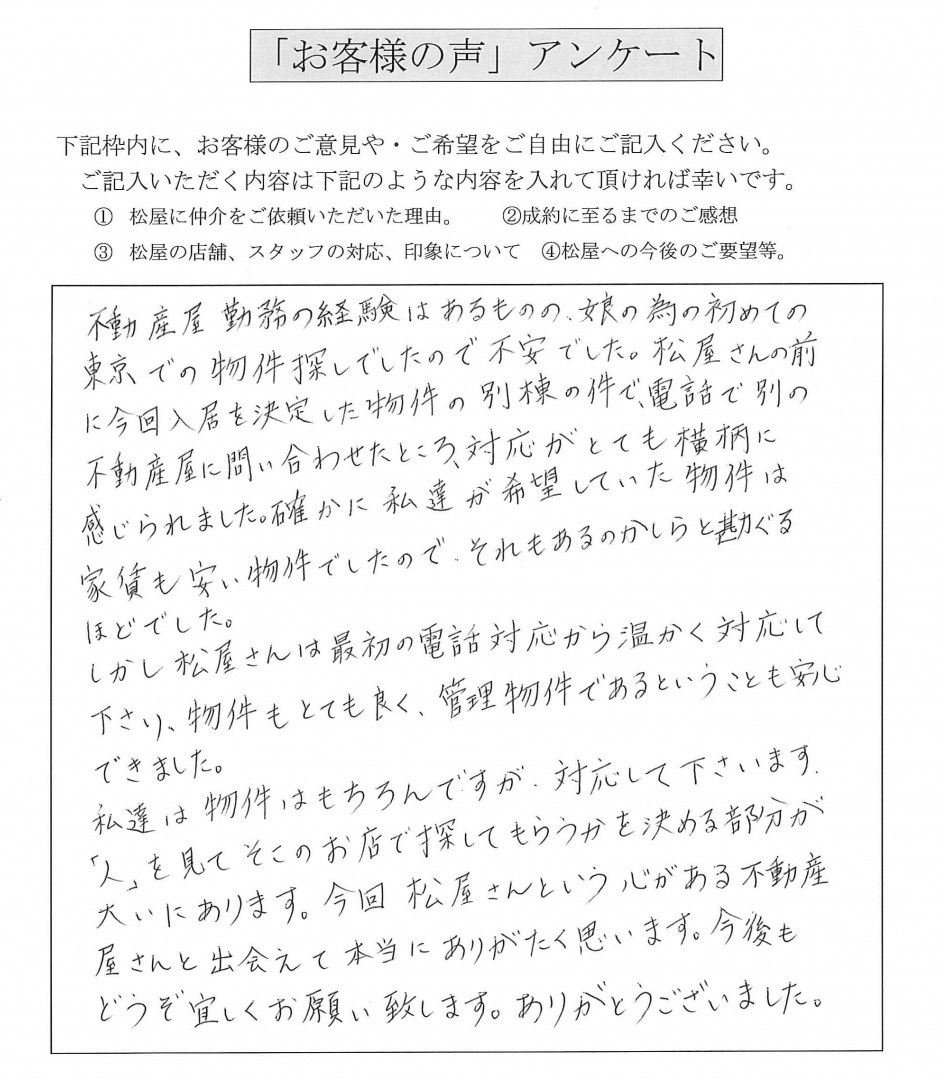 「お客様の声」アンケート
下記枠内に、お客様のご意見や・ご希望をご自由にご記入ください。
ご記入いただく内容は下記のような内容を入れて頂ければ幸いです。
① 松屋に仲介をご依頼いただいた理由。 ②成約に至るまでのご感想
③ 松屋の店舗、スタッフの対応、印象について ④松屋への今後のご要望等。
不動産屋勤務の経験はあるものの、娘の為の初めての
東京での物件探しでしたので不安でした。松屋さんの前
に今回入居を決定した物件の別棟の件で、電話で別の
不動産屋に問い合わせたところ、対応がとても横柄に
感じられました。確かに私達が希望していた物件は
家賃も安い物件でしたので、それもあるのかしらと勘ぐる
ほどでした。
しかし松屋さんは最初の電話対応から温かく対応して
下さり、物件もとても良く、管理物件であるということも安心
できました。
私達は物件はもちろんですが、対応して下さいます、
「人」を見てそこのお店で探してもらうかを決める部分が
大いにあります。今回松屋さんという心がある不動産
屋さんと出会えて本当にありがたく思います。今後も
どうぞ宜しくお願い致します。ありがとうございました。